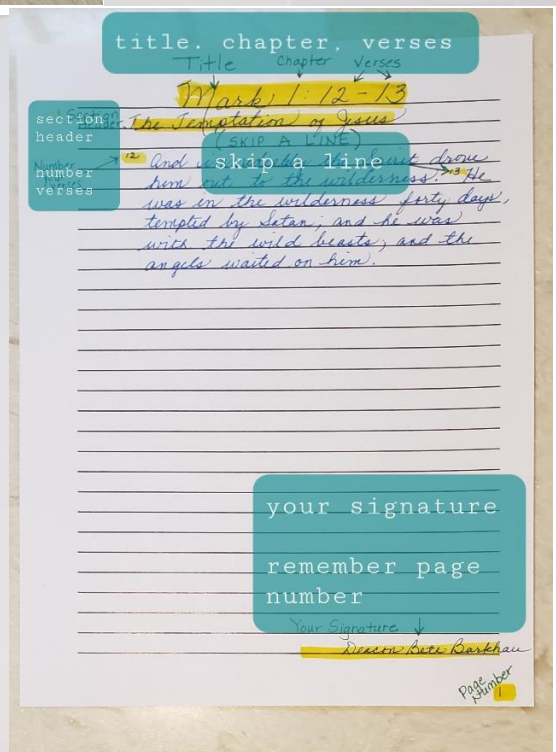 title. chapter, verses
Title Chapter Verses
Mark 1:12-13
section
header
Header. The Temptation of Jesus
(SKIP A LINE)
skip a line
number
verses
Number
12 And Spirit drove
him out to the wilderness. 13 He
was in the wilderness forty days,
tempted by Satan; and he was
with the wild beasts; and the
angels waited on him.
your signature
remember page
number
Your Signature
Deacon Bete Barkhau
Page
Number
1